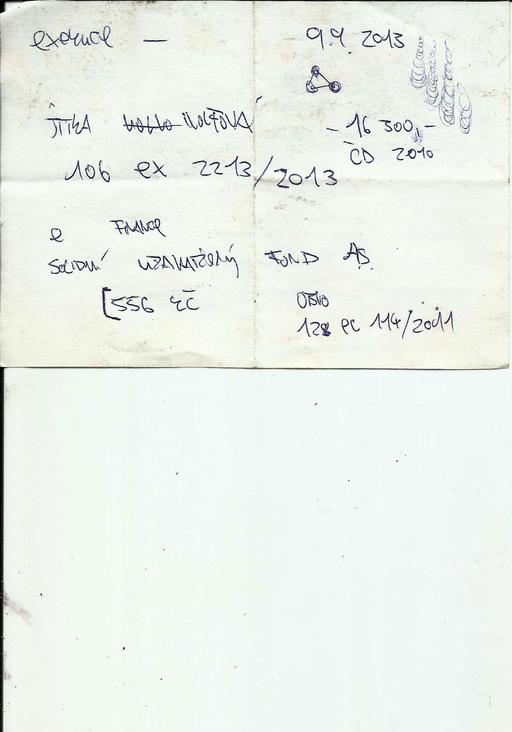 exekuce — 9.9. 2013
JITKA WOLFOVÁ - 16 300,-
ČD 2010
106 ex 2213/2013
e FINANCE
SOLIDNÍ UZAVŘENÝ FOND AS
[556 KČ
128 EC 114/2011